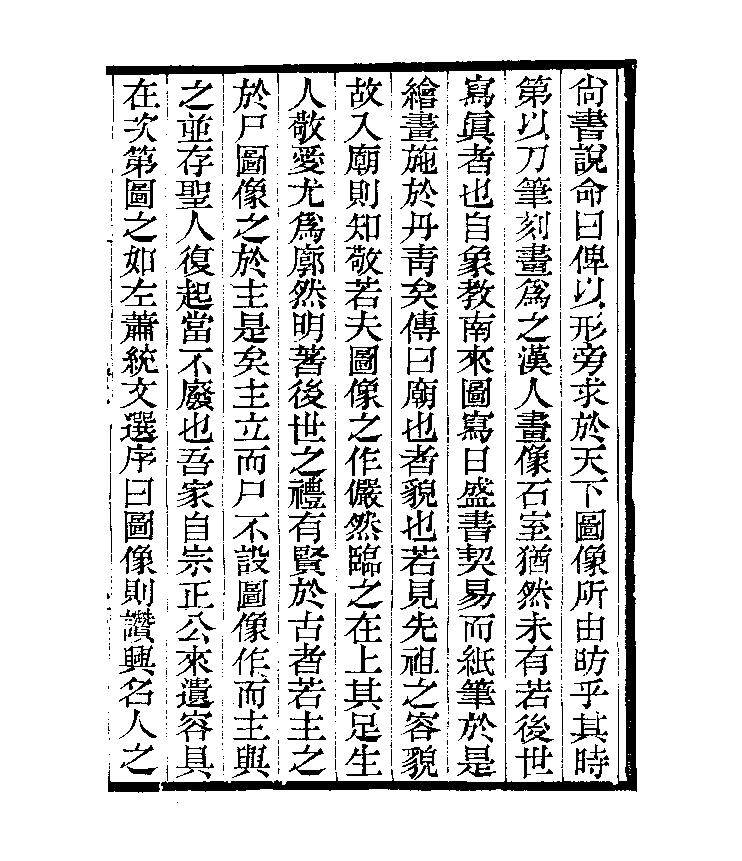 尙書說命曰俾以形旁求於天下圖像所由昉乎其時
第以刀筆刻畫爲之漢人畫像石室猶然未有若後世
寫眞者也自象教南來圖寫日盛書契易而紙筆於是
繪畫施於丹靑矣傳曰廟也者貌也若見先祖之容貌
故入廟則知敬若夫圖像之作儼然臨之在上其足生
人敬愛尤爲廓然明著後世之禮有賢於古者若主之
於尸圖像之於主是矣主立而尸不設圖像作而主與
之並存聖人復起當不廢也吾家自宗正公來遺容具
在次第圖之如左蕭統文選序曰圖像則讚興名人之